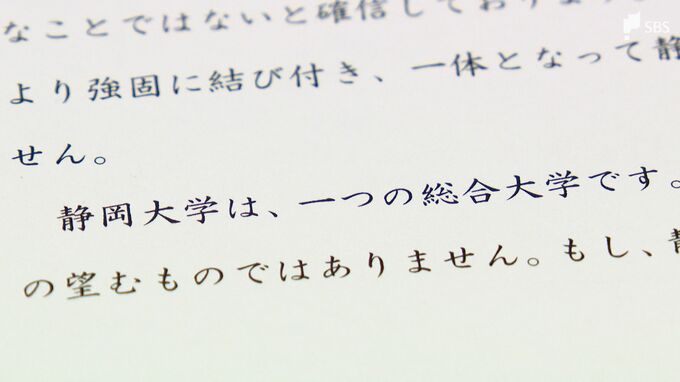 なことではないと確信しており
より強固に結び付き、一体となって静
せん。
静岡大学は、一つの総合大学です。
の望むものではありません。もし、静
SBS